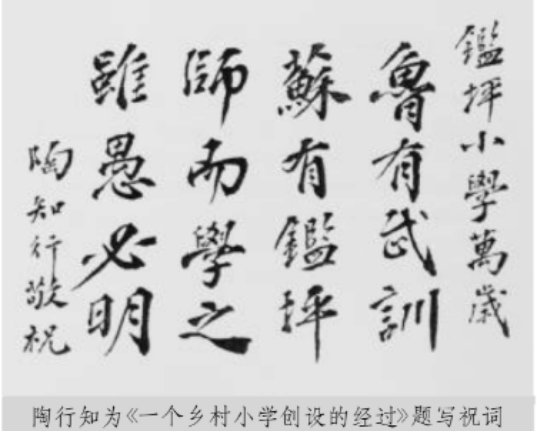 鑑坪小學萬歲
魯有武訓
蘇有鑑坪
師而學之
雖愚必明
陶知行敬祝
陶行知为《一个乡村小学创设的经过》题写祝词